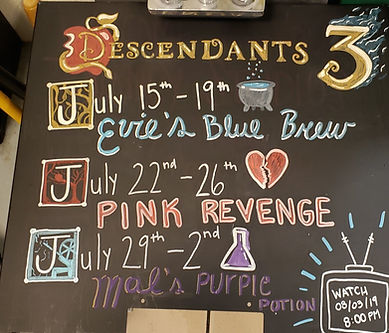 DESCENDANTS 3
July 15th - 19th
Evie's Blue Brew
July 22nd - 26th
PINK REVENGE
July 29th - 2nd
Mal's Purple
POTION
WATCH
08/03/19
8:00PM